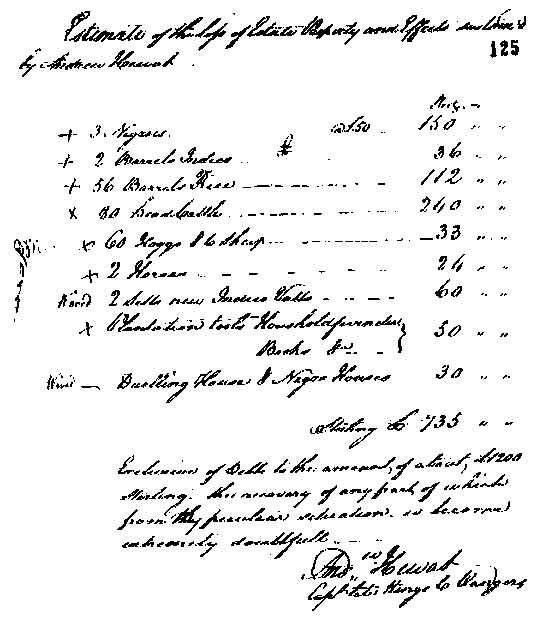 Estimate of the Loss of Estate Property and Effects sustain'd
125
by Andrew Hewat
Sterg. —
+ 3 Negroes @ £50 150 " "
+ 2 Barrels Indico 36 " "
+ 56 Barrels Rice 112 " "
x 80 head Cattle 240 " "
x 60 Hoggs & 6 Sheep 33 " "
+ 2 Horses 24 " "
2 Setts new Indico Vatts 60 " "
x Plantation tools Household furniture
Books &c 50 " "
— Duelling House & Negro Houses 30 " "
Sterling £ 735 " "
Exclusive of Debts to the amount of about £1200
Sterling. the recovery of any part of which
from they peculiar situation is become
extremely doubtfull
And.w Hewat
Capt. late Kings Co Rangers